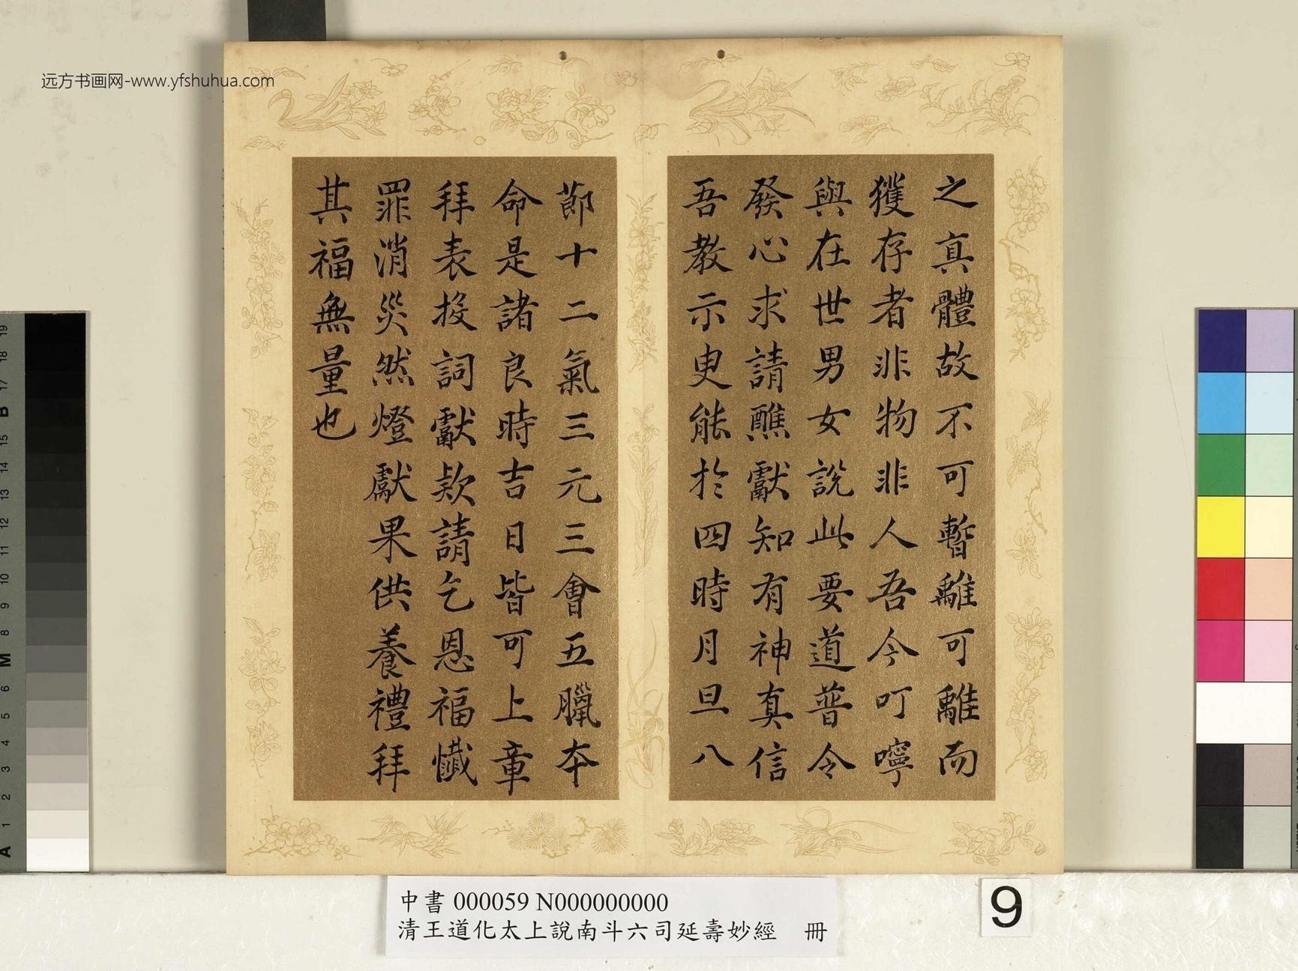 远方书画网-www.yfshuhua.com
之真體故不可暫離可離而
獲存者非物非人吾今叮嚀
與在世男女說此要道普令
發心求請醮獻知有神真信
吾教示更能於四時月旦八
節十二氣三元三會五臘本
命是諸良時吉日皆可上章
拜表投詞獻款請乞恩福懺
罪消災然燈獻果供養禮拜
其福無量也
中書 000059 N000000000
清王道化太上說南斗六司延壽妙經 冊
9
19
18
17
B
15
14
13
12
11
10
9
8
M
6
5
4
3
2
1
A